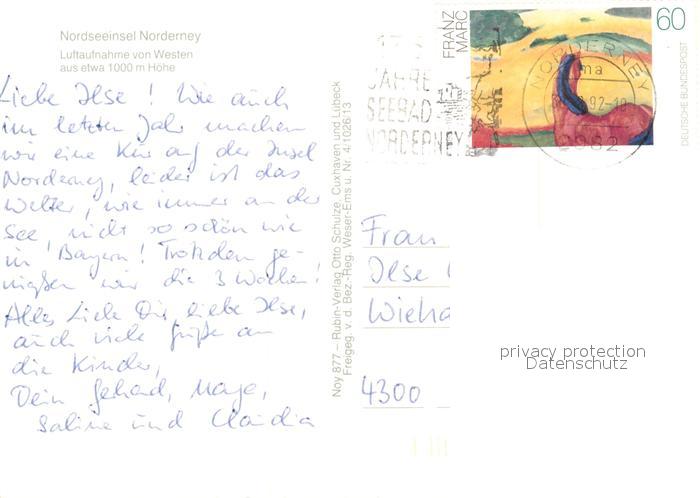 Nordseeinsel Norderney
Luftaufnahme von Westen
aus etwa 1000 m Höhe
Liebe Ilse! Wie auch
im letzten Jahr machen
wir eine Kur auf der Insel
Norderney, leider ist das
Wetter, wie immer an der
See, nicht so schön wie
in Bayern! Trotzdem ge-
nießen wir die 3 Wochen!
Alles Liebe Dir, liebe Ilse,
auch viele Grüße an
die Kinder,
Dein Gerhard,
Sabine und Claudia
Noy 877 – Rubin-Verlag Otto Schulze, Cuxhaven und Lübeck
Freigeg. v. d. Bez.-Reg. Weser-Ems u. Nr. 4/1026/13
JAHRE
SEEBAD
NORDERNEY
FRANZ
MARC
60
DEUTSCHE BUNDESPOST
NORDERNEY
ma
2982
Frau
Ilse
Wieha
4300
privacy protection
Datenschutz